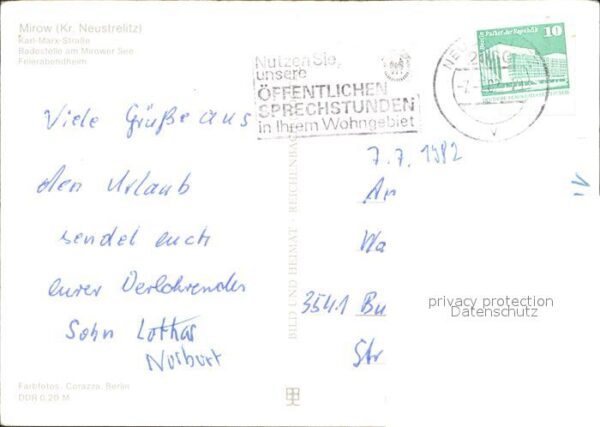 Mirow (Kr. Neustrelitz)
Karl-Marx-Straße
Badestelle am Mirower See
Feierabendheim
Nutzen Sie,
unsere
ÖFFENTLICHEN
SPRECHSTUNDEN
in Ihrem Wohngebiet
Palast der Republik
10
7.7.1982
Viele Grüße aus
den Urlaub
sendet euch
eurer
Sohn Lothar
Norburt
An
Wa
3541 Bu
Str
BILD UND HEIMAT · REICHENBACH
privacy protection
Datenschutz
Farbfotos: Corazza, Berlin
DDR 0,20 M